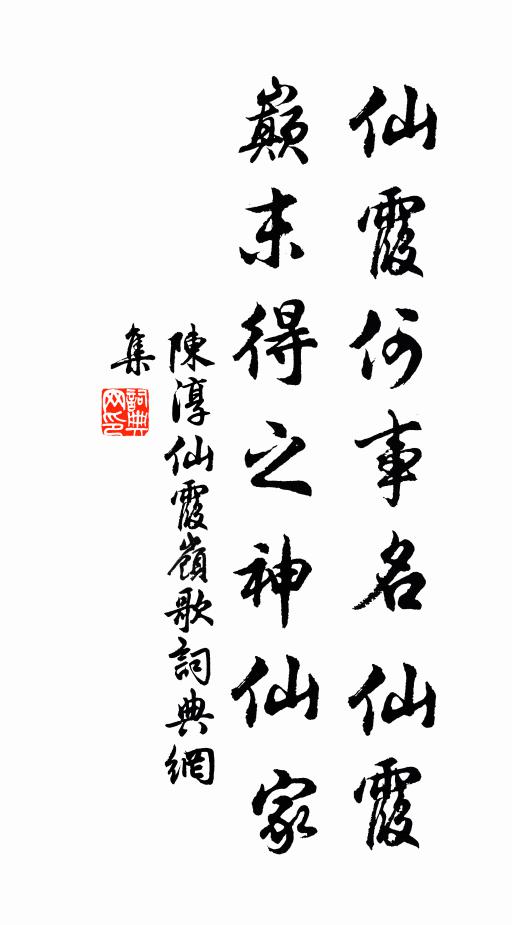 仙霞何事名仙霞
巔末得之神仙家
陳淳仙霞嶺歌詞典網
集
詞典
网印